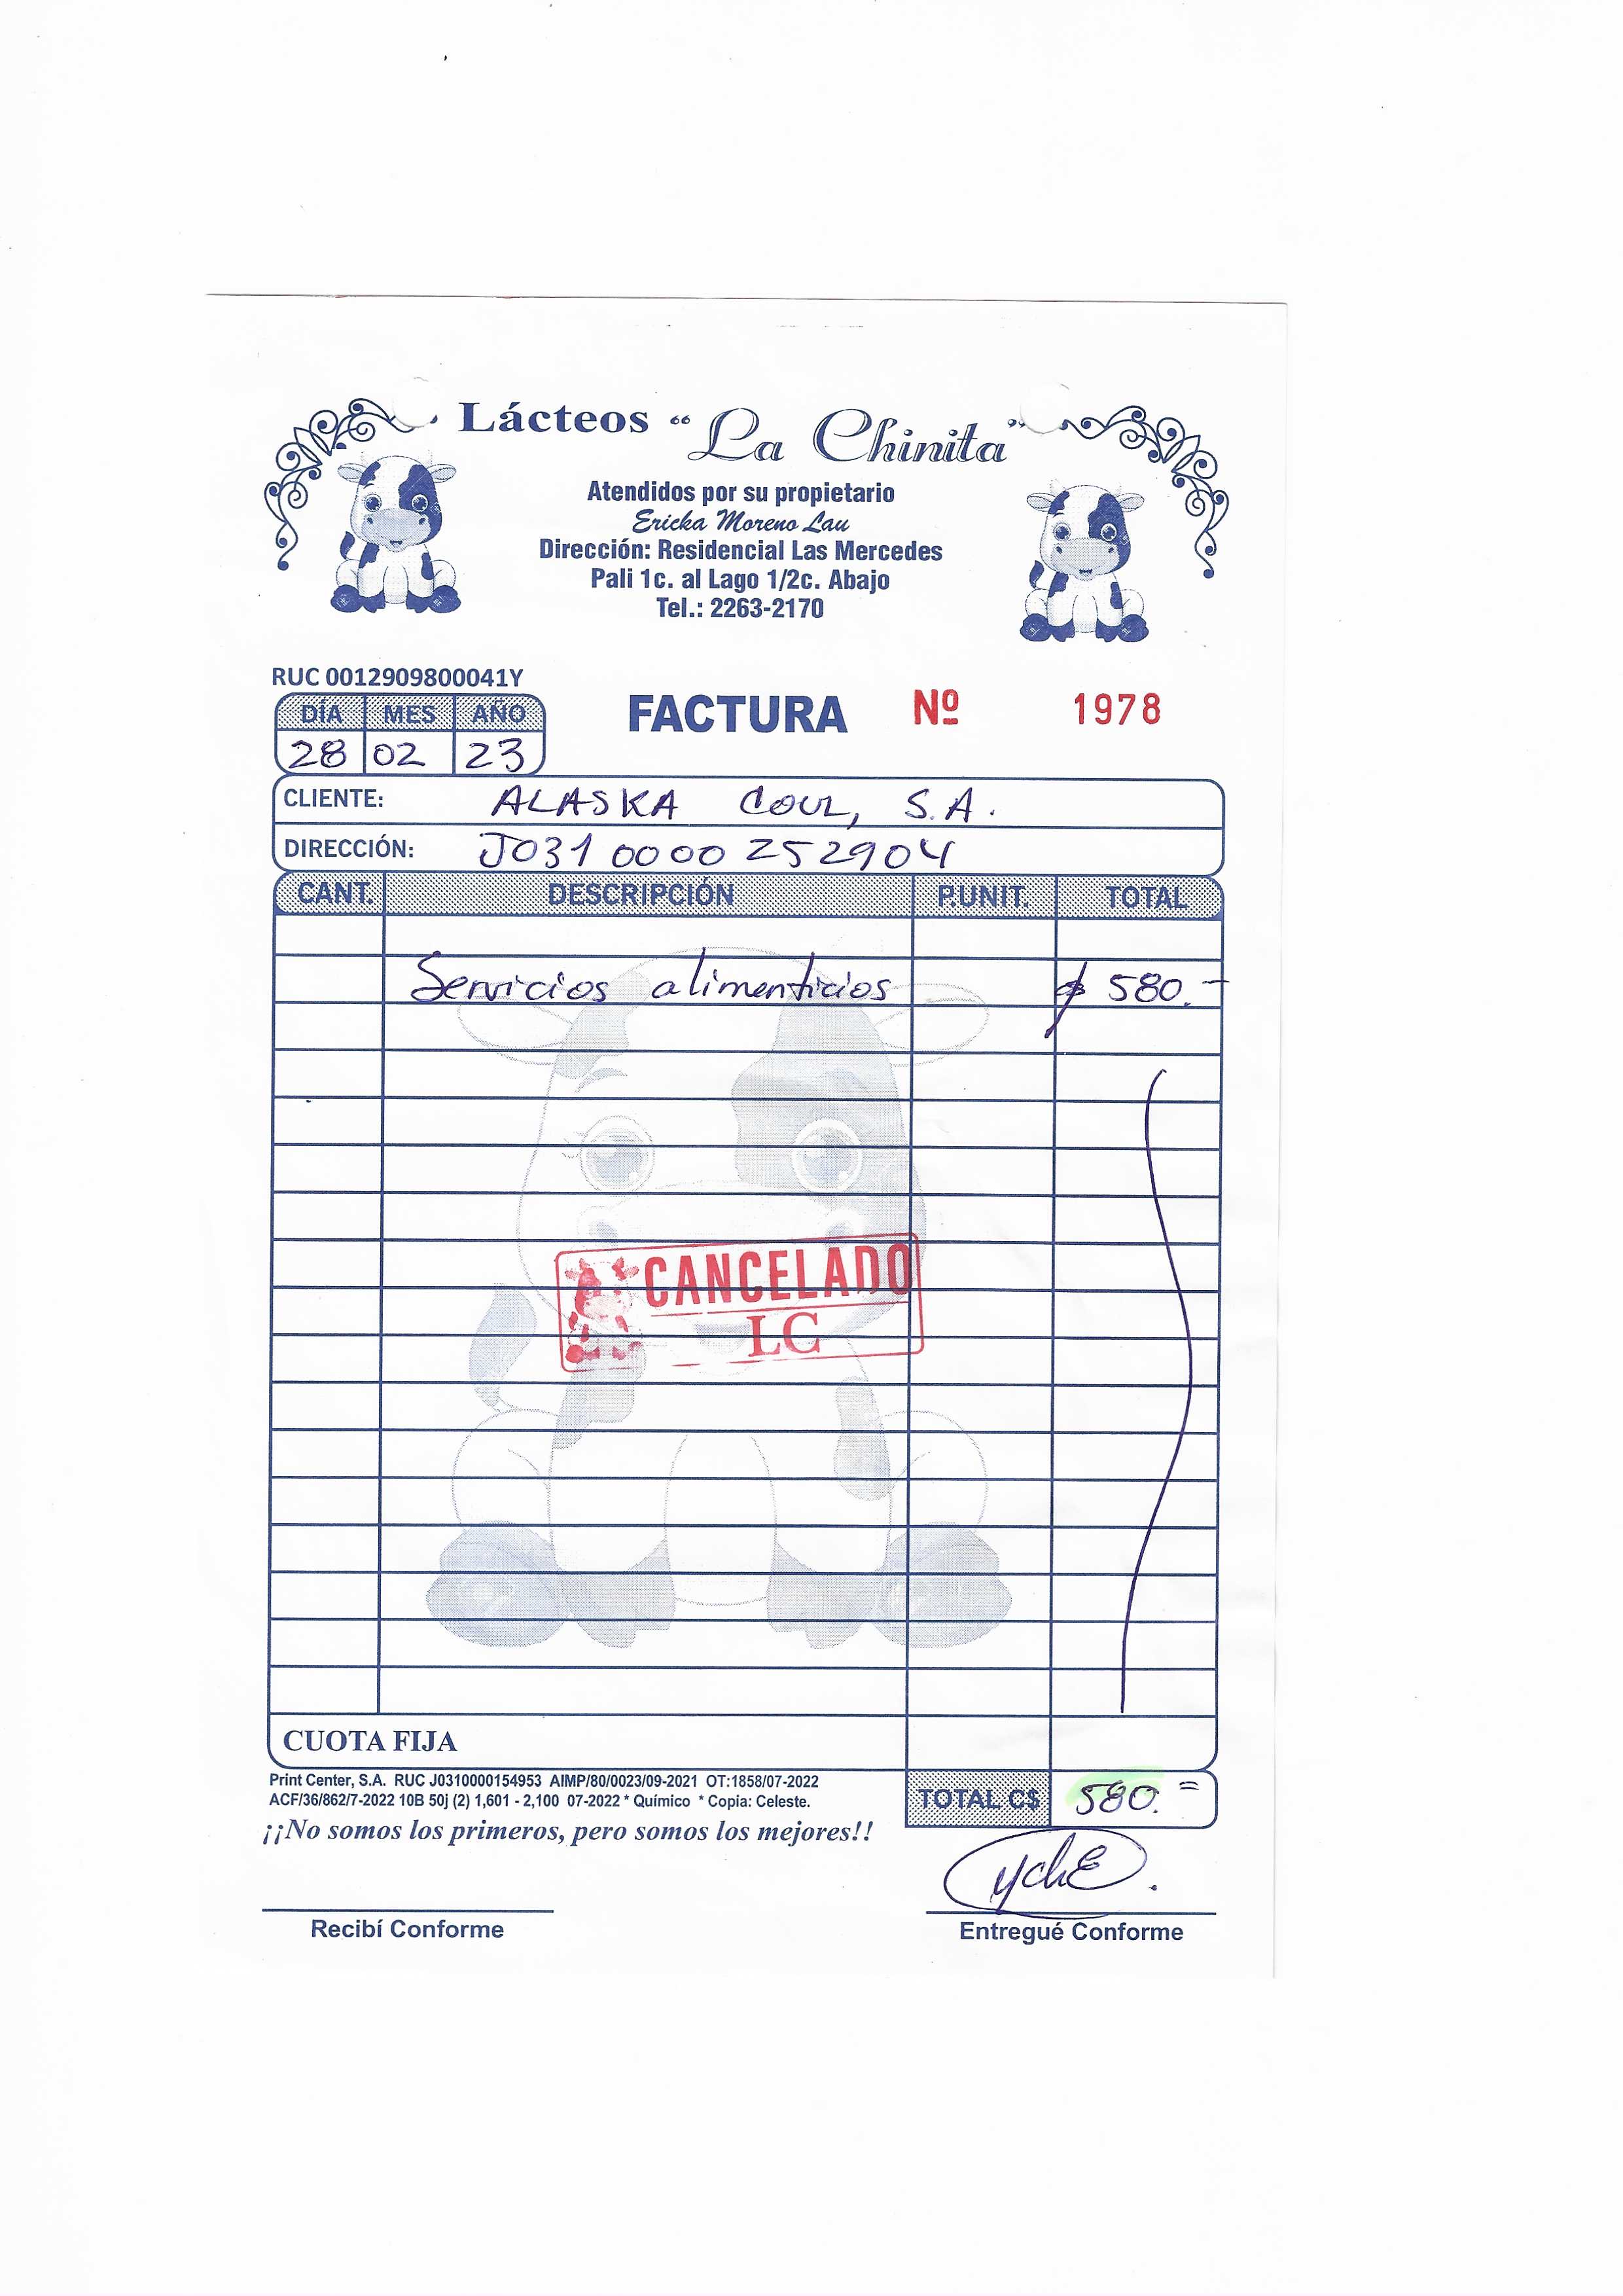 Lácteos "La Chinita"
Atendidos por su propietario
Ericka Moreno Lau
Dirección: Residencial Las Mercedes
Pali 1c. al Lago 1/2c. Abajo
Tel.: 2263-2170
RUC 0012909800041Y
DÍA MES AÑO
28 02 23
FACTURA Nº 1978
CLIENTE: ALASKA COUL, S.A.
DIRECCIÓN: J0310000252904
CANT. DESCRIPCIÓN P.UNIT. TOTAL
Servicios alimenticios $ 580.-
CANCELADO
LC
CUOTA FIJA
Print Center, S.A. RUC J0310000154953 AIMP/80/0023/09-2021 OT:1858/07-2022
ACF/36/862/7-2022 10B 50j (2) 1,601 - 2,100 07-2022 * Químico * Copia: Celeste.
TOTAL C$ 580.=
¡¡No somos los primeros, pero somos los mejores!!
Recibí Conforme
Entregué Conforme